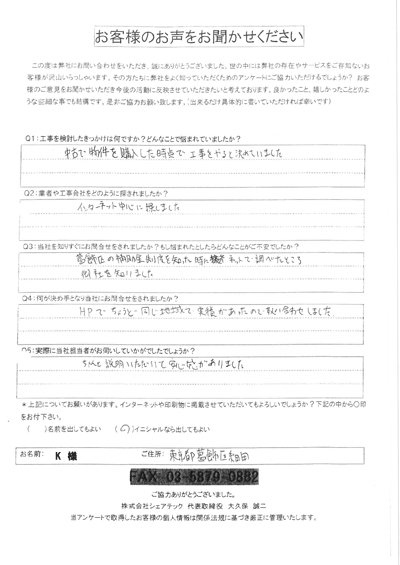 お客様のお声をお聞かせください
この度は弊社にお問い合わせをいただき、誠にありがとうございました。世の中には弊社の存在やサービスをご存知ないお
客様が沢山いらっしゃいます。その方たちに弊社をよく知っていただくためのアンケートにご協力いただけるでしょうか？お客
様のご意見をお聞かせいただき今後の活動に反映させていただきたいと考えております。良かったこと、嬉しかったことどのよ
うな些細な事でも結構です。是非ご協力お願い致します。（出来るだけ具体的に書いていただければ幸いです）
Q1：工事を検討したきっかけは何ですか？どんなことで悩まれていましたか？
中古で物件を購入した時点で工事をやると決めていました
Q2：業者や工事会社をどのように探されましたか？
インターネット中心に探しました
Q3：当社を知りすぐにお問合せをされましたか？もし悩まれたとしたらどんなことがご不安でしたか？
葛飾区の補助金制度を知った時にネットで調べたところ
御社を知りました
Q4：何が決め手となり当社にお問合せをされましたか？
HPでちょうど同じ地域で実績があったので問い合わせしました
Q5：実際に当社担当者がお伺いしていかがでしたでしょうか？
ちゃんと説明いただいて安心感がありました
＊上記についてお願いがあります。インターネットや印刷物に掲載させていただいてもよろしいでしょうか？下記の中から〇印
をお付下さい。
（　）名前を出してもよい　（〇）イニシャルなら出してもよい
お名前： K 様　ご住所： 東京都葛飾区
FAX 03-5879-0882
ご協力ありがとうございました。
株式会社シェアテック 代表取締役 大久保 誠二
当アンケートで取得したお客様の個人情報は関係法規に基づき厳正に管理いたします。